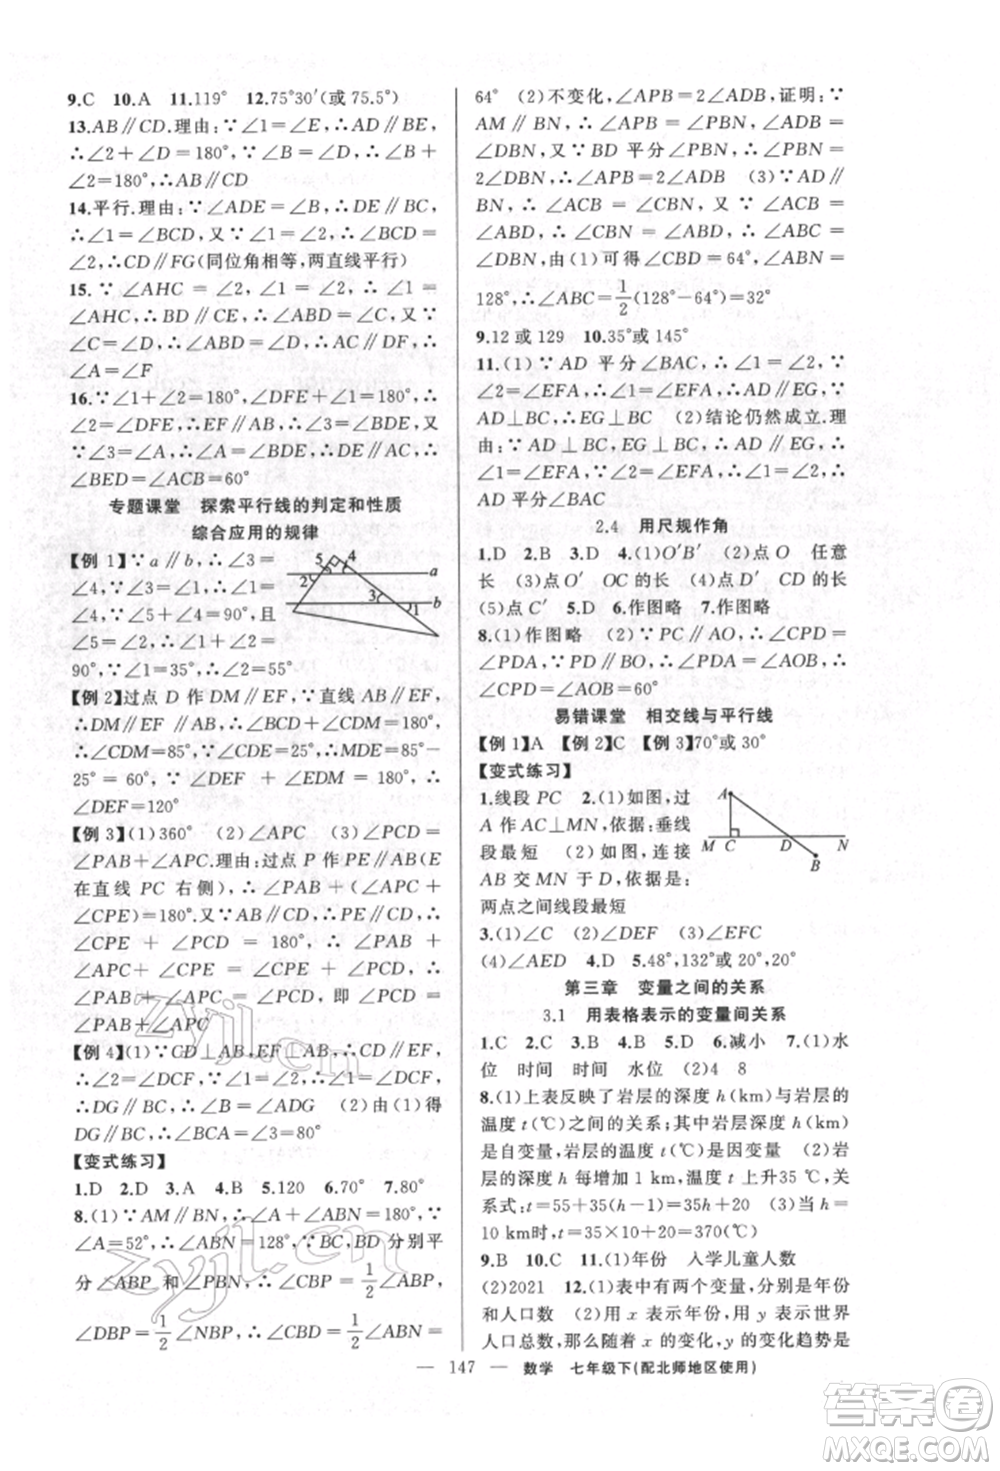 9.C 10.A 11.119° 12.75°30′(或 75.5°)
13.AB∥CD.理由:∵∠1=∠E,∴AD∥BE,
∴∠2+∠D=180°,∵∠B=∠D,∴∠B+
∠2=180°,∴AB∥CD
14.平行.理由:∵∠ADE=∠B,∴DE∥BC,
∴∠1=∠BCD,又∵∠1=∠2,∴∠2=
∠BCD,∴CD∥FG(同位角相等,两直线平行)
15.∵∠AHC=∠2,∠1=∠2,∴∠1=
∠AHC,∴BD∥CE,∴∠ABD=∠C,又∵
∠C=∠D,∴∠ABD=∠D,∴AC∥DF,∴
∠A=∠F
16.∵∠1+∠2=180°,∠DFE+∠1=180°,∴
∠2=∠DFE,∴EF∥AB,∴∠3=∠BDE,又
∵∠3=∠B,∴∠B=∠BDE,∴DE∥BC,∴
∠BED=∠ACB=60°
专题课堂 探索平行线的判定和性质
综合应用的规律
【例 1】∵a∥b,∴∠3=
∠2,∵∠4=∠1+∠3,∴
∠4=∠1+∠2,∵∠5+
∠1+∠2+∠4=90°,且
∠5=∠2,∴∠1+∠2=
90°,∵∠1=35°,∴∠2=55°
5 4
2
a
3
21
b
【例 2】过点 D 作 DM∥EF,∵直线 AB∥EF,
∴DM∥EF∥AB,∴∠BCD+∠CDM=180°,
∴∠CDM=85°,∵∠CDE=25°,∴MDE=85°-
25°=60°,∵∠DEF+∠EDM=180°,∴
∠DEF=120°
【例 3】(1)360° (2)∠APC (3)∠APC=
∠PAB+∠PCD.理由:过点 P 作PE∥AB(E
在直线 PC 右侧),∴∠PAB+(∠APC+
∠CPE)=180°.又∵AB∥CD,∴PE∥CD,∴
∠CPE + ∠PCD = 180°,∴∠PAB +
∠APC+∠CPE=∠CPE+∠PCD,∴
∠PAB + ∠APC = ∠PCD,即 ∠APC =
∠PCD-∠PAB
【例 4】(1)∵CD⊥AB,EF⊥AB,∴CD∥EF,
∴∠2=∠DCF,∵∠1=∠2,∴∠1=∠DCF,∴
DG∥BC,∴∠B=∠ADG (2)由(1)得
DG∥BC,∴∠BCA=∠3=80°
【变式练习】
1.D 2.D 3.A 4.B 5.120 6.70° 7.80°
8.(1)∵AM∥BN,∴∠A+∠ABN=180°,∵
∠A=52°,∴∠ABN=128°,∵BC,BD 分别平
分∠ABP 和∠PBN,∴∠CBP=1/2∠ABP,
∠DBP=1/2∠NBP,∴∠CBD=1/2∠ABN=
64° (2)不变化,∠APB=2∠ADB,证明:∵
AM∥BN,∴∠APB=∠PBN,∠ADB=
∠DBN,又∵BD 平分∠PBN,∴∠PBN=
2∠DBN,∴∠APB=2∠ADB (3)∵AD∥
BN,∴∠ACB=∠CBN,又∵∠ACB=
∠ABD,∴∠CBN=∠ABD,∴∠ABC=
∠DBN,由(1)可得∠CBD=64°,∠ABN=
128°,∴∠ABC=1/2(128°-64°)=32°
9.12 或 129 10.35°或 145°
11.(1)∵AD 平分∠BAC,∴∠1=∠2,∵
∠2=∠EFA,∴∠1=∠EFA,∴AD∥EG,∵
AD⊥BC,∴EG⊥BC (2)结论仍然成立.理
由:∵AD⊥BC,EG⊥BC,∴AD∥EG,∴
∠1=∠EFA,又∵∠2=∠EFA,∴∠1=∠2,∴
AD 平分∠BAC
2.4 用尺规作角
1.D 2.B 3.D 4.(1)O′B′ (2)点 O 任意
长 (3)点 O′ OC 的长 (4)点 C′ CD 的长
(5)点 C′ 5.D 6.作图略 7.作图略
8.(1)作图略 (2)∵PC∥AO,∴∠CPD=
∠PDA,∵PD∥BO,∴∠PDA=∠AOB,∴
∠CPD=∠AOB=60°
易错课堂 相交线与平行线
【例 1】A 【例 2】C 【例 3】70°或 30°
【变式练习】
1.线段 PC 2.(1)如图,过
A 作 AC⊥MN,依据:垂线
段最短 (2)如图,连接
AB 交 MN 于 D,依据是:
两点之间线段最短
A
M C D N
B
3.(1)∠C (2)∠BED (3)∠EFC
(4)∠AED 4.D 5.48°,132°或 20°,20°
第三章 变量之间的关系
3.1 用表格表示的变量间关系
1.C 2.C 3.B 4.B 5.D 6.减小 7.(1)水
位 时间 时间 水位 (2)4 8
8.(1)上表反映了岩层的深度 h(km)与岩层的
温度 t(℃)之间的关系;其中岩层深度 h(km)
是自变量,岩层的温度 t(℃)是因变量 (2)岩
层的深度 h 每增加 1 km,温度 t 上升 35℃,关
系式:t=55+35(h-1)=35h+20 (3)当 h=
10 km时,t=35×10+20=370(℃)
9.B 10.C 11.(1)年份 入学儿童人数
(2)2021 12.(1)表中有两个变量,分别是年份
和人口数 (2)用 x 表示年份,用 y 表示世界
人口总数,那么随着 x 的变化,y 的变化趋势是
— 147 — 数学 七年级下(配北师地区使用)
zyjl.cn
zyjl.cn
答案卷
MXQE.COM